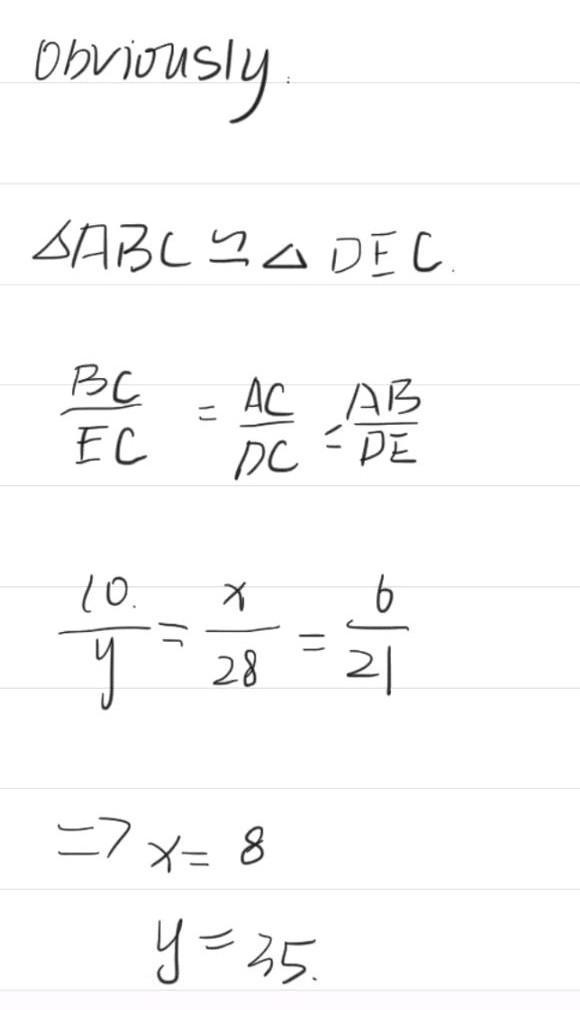 Obviously.
△ABC ≌ △DEC.
BC/EC = AC/DC = AB/DE
10./y = x/28 = 6/21
=> x = 8
y = 35.